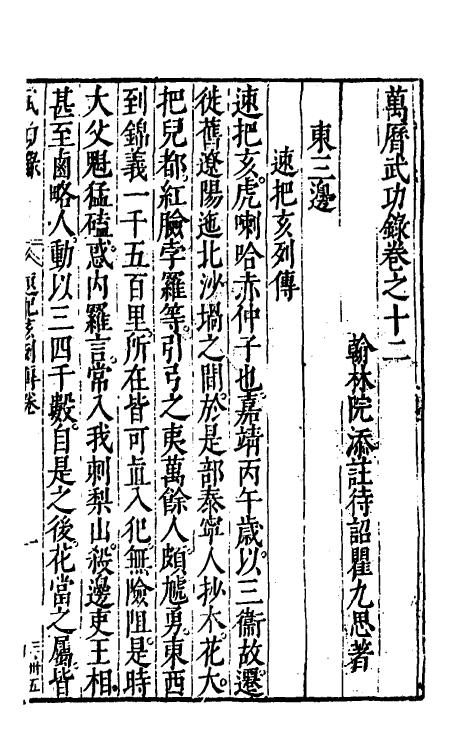 萬曆武功錄卷之十二
翰林院添註待詔瞿九思著
東三邊
速把亥列傳
速把亥。虎喇哈赤仲子也。嘉靖丙午歲。以三衞故。遷
徙舊遼陽迤北沙堝之間。於是部泰寧人抄木花大。
把兒都。紅臉孛羅等。引弓之東萬餘人。頗虓勇。東西
到錦義一千五百里。所在皆可直入犯。無險阻。是時
大父魁猛磕。惑內羅言。常入我刺梨山。殺邊吏王相。
甚至鹵略人。動以三四千數。自是之後。花當之屬。皆
武功錄
速把亥列傳卷
一
三、卅五